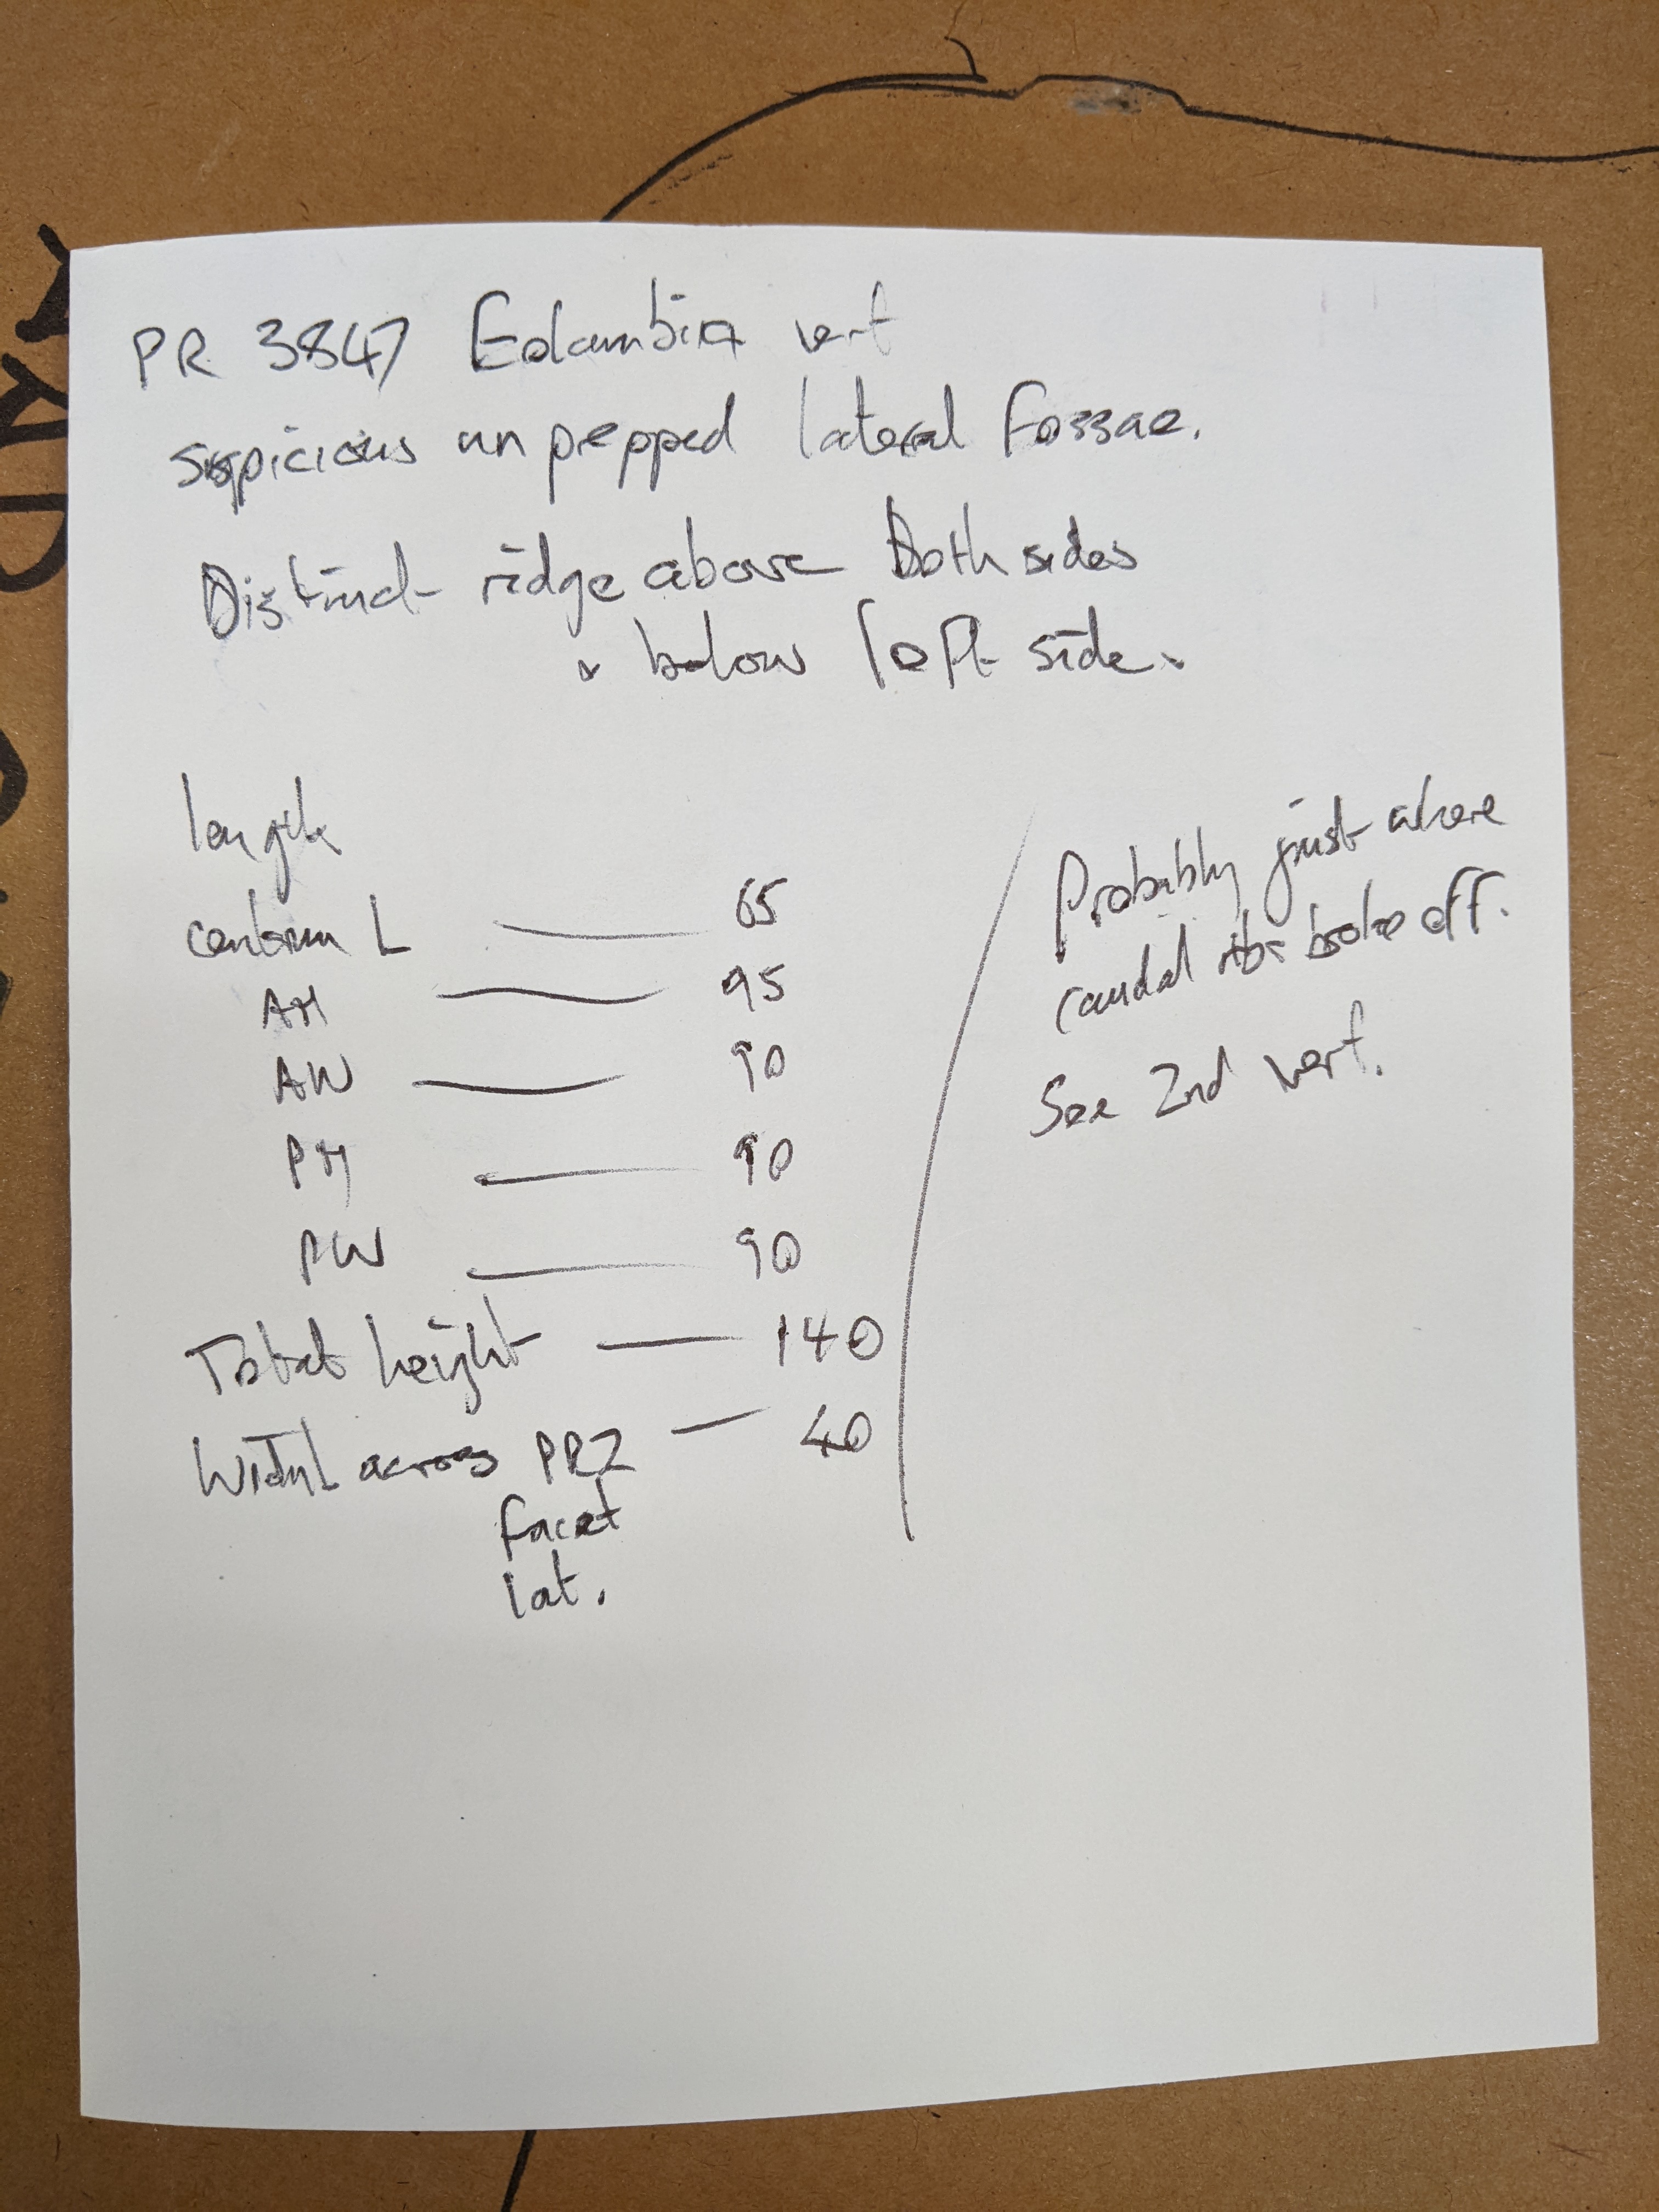 PR 3847 Eolambia vert
suspicious unprepped lateral fossae.
Distinct ridge above both sides
" below left side.
length
centrum L — 65
AH — 95
AW — 90
PH — 90
PW — 90
Total height — 140
Width across PRZ — 40
facet
lat.
Probably just where
caudal ribs broke off.
See 2nd vert.